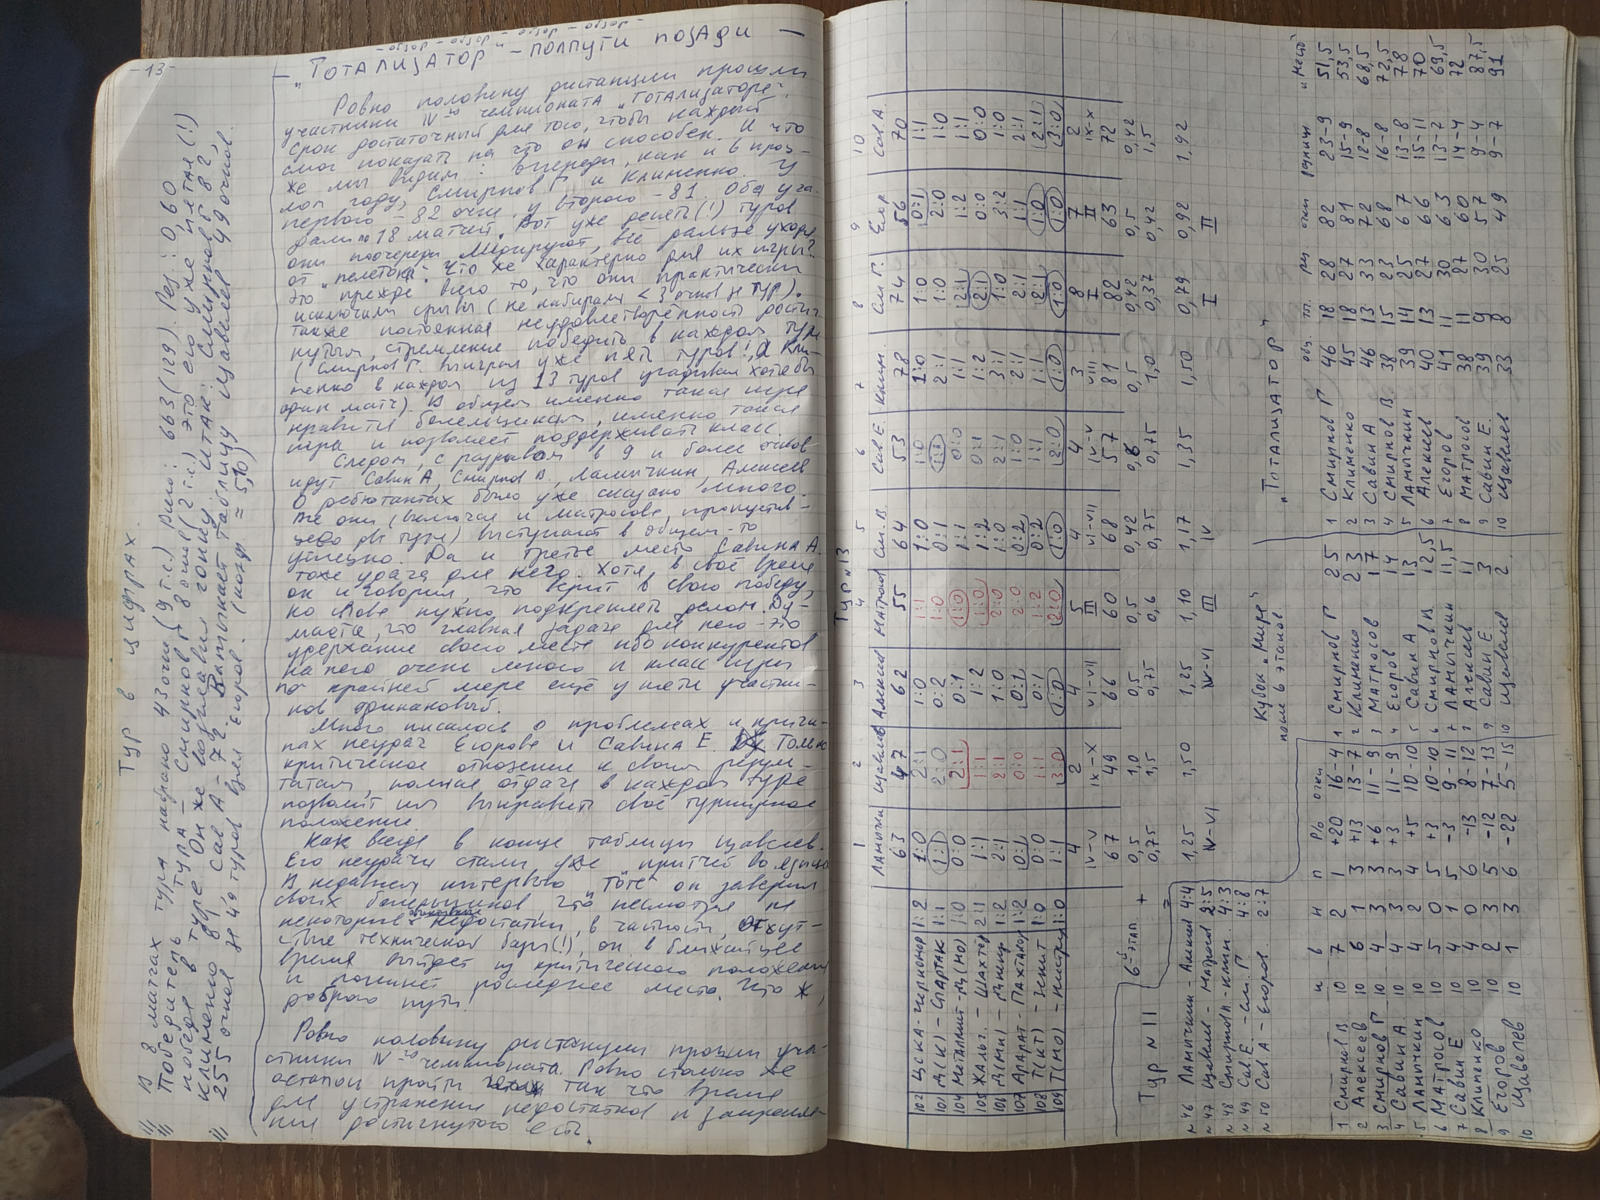 -13-
-обзор-обзор-обзор-обзор-
— "Тотализатор" - полпути позади —
Ровно половину дистанции прошли
участники IV го чемпионата "Тотализатора".
Срок достаточный для того, чтобы каждый
смог показать на что он способен. И что
же мы видим: впереди, как и в прош-
лом году, Смирнов Г и Клименко. У
первого - 82 очка, у второго - 81. Оба уга-
дали по 18 матчей. Вот уже девять(!) туров
они поочереди лидируют, всё дальше уходя
от "пелетона". Что же характерно для их игры?
Это прежде всего то, что они практически
исключили срывы (не набирали <3 очков за тур).
также постоянная неудовлетворённость достиг-
нутым, стремление победить в каждом туре
(Смирнов Г. выиграл уже пять туров!, а Кли-
менко в каждом из 13 туров угадывал хотя бы
один матч). В общем именно такая игра
нравится болельщикам, именно такая
игра и позволяет поддерживать класс.
Следом, с разрывом в 9 и более очков
идут Савин А, Смирнов В, Ламычкин, Алексеев
О дебютантах было уже сказано много.
Все они (включая и Матросова, пропустив-
шего два тура) выступают в общем-то
успешно. Да и третье место Савина А.
тоже удача для него. Хотя, в своё время
он и говорил, что верит в свою победу,
но слова нужно подкреплять делом. Ду-
мается, что главная задача для него - это
удержание своего места ибо конкурентов
на него очень много и класс игры
по крайней мере ещё у пяти участни-
ков одинаковый.
Много писалось о проблемах и причи-
нах неудач Егорова и Савина Е. Только
критическое отношение к своим резуль-
татам, полная отдача в каждом туре
позволит им выправить своё турнирное
положение
Как всегда в конце таблицы Щавелев.
Его неудачи стали уже притчей во языцах
В недавнем интервью "Тоте" он заверил
своих болельщиков, что несмотря на
некоторые недостатки, в частности, отсутст-
вие технической базы(!), он в ближайшее
время выйдет из критического положения
и покинет последнее место. Что ж,
доброго пути!
Ровно половину дистанции прошли уча-
стники IV го чемпионата. Ровно столько же
осталось пройти так что время
для устранения недостатков и закрепле-
ния достигнутого есть.
Тур в цифрах.
В 8 матчах тура набрано 43 очка (9 т.с.) Всего: 663 (129). Рез: 0,60
Победитель тура - Смирнов Г 8 очков (2 т.с.) это его уже пятая (!)
победа в туре. Он же возглавил гонку. Итак: Смирнов Г 82,
Клименко 81, Сав А - 72. Замыкает таблицу Щавелев 49 очков
255 очков за 49 туров взял Егоров. (коэф = 5,10)
Тур N 13
1 2 3 4 5 6 7 8 9 10
Ламычкин Щавелев Алексеев Матросов См.В. Сав Е. Клим. См Г. Егор. Сав А.
63 47 62 55 64 53 78 74 56 70
102 ЦСКА - Черномор 1:2 1:0 2:1 1:0 1:1 1:0 1:0 1:0 1:0 0:1 1:1
101 Д(К) - Спартак 1:1 1:1 2:0 0:2 1:0 0:1 1:1 2:1 1:0 2:0 1:0
104 Металлист - Д(МО) 1:0 0:0 2:1 0:1 1:0 1:1 0:0 1:1 2:1 1:2 1:1
105 Жальг. - Шахтёр 2:1 1:1 1:1 1:2 1:0 1:2 0:1 1:2 2:1 0:0 0:0
106 Д(Мн) - Днепр 1:2 2:1 2:1 1:0 2:0 1:0 2:1 3:1 1:0 3:2 1:0
107 Арарат - Пахтакор 1:2 0:1 0:0 0:1 2:0 0:2 1:0 2:1 2:1 1:1 2:1
108 Т(КТ) - Зенит 1:0 0:0 1:1 0:1 1:2 0:2 1:1 1:1 2:1 1:0 2:1
109 Т(МО) - Нистру 1:0 1:1 3:0 1:0 2:0 1:0 2:0 1:0 1:0 1:0 3:0
4 2 4 5 4 4 3 8 7 2
IV-V IX-X VI-VII III VI-VII IV-V VIII I II IX-X
67 49 66 60 68 57 81 82 63 72
0,5 1,0 0,5 0,5 0,42 0,6 0,5 0,42 0,5 0,42
0,75 1,5 0,75 0,6 0,75 0,75 1,0 0,37 0,42 1,5
1,25 1,50 1,25 1,10 1,17 1,35 1,50 0,79 0,92 1,92
IV-VI IV-VI III IV I II
Тур N 11 6й этап
N 46 Ламычкин - Алексеев 4:4
N 47 Щавелев - Матросов 2:5
N 48 Смирнов В. - Клим. 4:3
N 49 Сав Е. - См. Г 4:8
N 50 Сав. А - Егоров 2:7
и в н п р/о очки
1 Смирнов В. 10 7 2 1 +20 16-4
2 Алексеев 10 6 1 3 +13 13-7
3 Смирнов Г 10 4 3 3 +6 11-9
4 Савин А 10 4 3 3 +3 11-9
5 Ламычкин 10 4 2 4 +5 10-10
6 Матросов 10 5 0 5 +3 10-10
7 Савин Е 10 4 1 5 -3 9-11
8 Клименко 10 4 0 6 -13 8-12
9 Егоров 10 2 3 5 -12 7-13
10 Щавелев 10 1 3 6 -22 5-15
Кубок "Мира"
после 6 этапов
1 Смирнов Г 25
2 Клименко 23
3 Матросов 17
4 Егоров 14
5 Савин А 13
6 Смирнов В 12,5
7 Ламычкин 11,5
8 Алексеев 11
9 Савин Е 3
10 Щавелев 2
"Тотализатор"
общ т. рм очки разниц "мест"
1 Смирнов Г 46 18 28 82 23-9 51,5
2 Клименко 45 18 27 81 15-9 53,5
3 Савин А 46 13 33 72 12-8 68,5
4 Смирнов В. 38 15 23 68 16-8 72,5
5 Ламычкин 39 14 25 67 13-8 78
6 Алексеев 40 13 27 66 15-11 70
7 Егоров 41 11 30 63 13-2 69,5
8 Матросов 38 11 27 60 14-4 72
9 Савин Е. 39 9 30 57 9-4 87,5
10 Щавелев 33 8 25 49 9-7 91